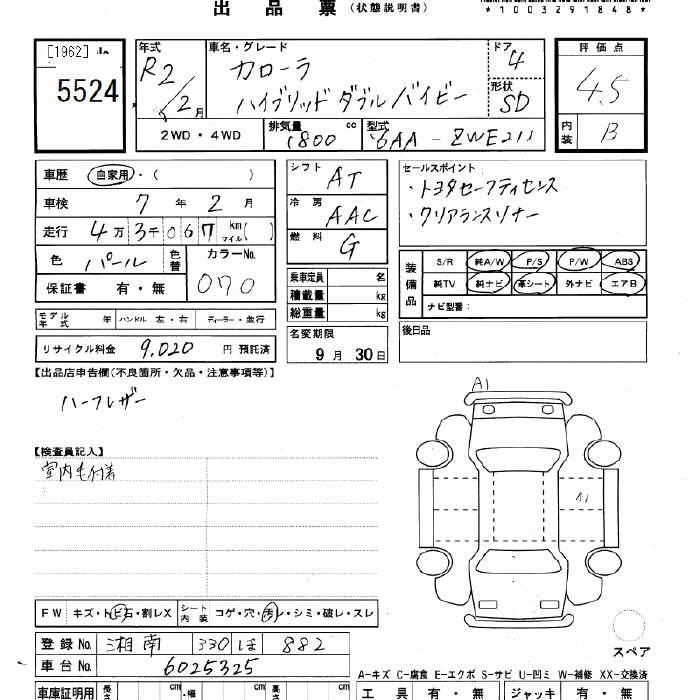 出品票 (状態説明書)
*1003291848*
[1962]
5524
年式 R2/2月
車名・グレード カローラ
ハイブリッド ダブルバイビー
ドア 4
形状 SD
評価点 4.5
内装 B
2WD・4WD
排気量 1800 cc
型式 6AA-ZWE211
車歴 自家用・( )
車検 7年2月
走行 4万3千067 km マイル( )
色 パール 色替 カラーNo. 070
保証書 有・無
シフト AT
冷房 AAC
燃料 G
セールスポイント
・トヨタセーフティセンス
・クリアランスソナー
装備品 S/R 純A/W P/S P/W ABS
純TV 純ナビ 革シート 外ナビ エアB
ナビ型番:
乗車定員 名
積載量 kg
総重量 kg
モデル年式 年 ハンドル 左・右 ディーラー・並行
名変期限 9月30日
後日品
リサイクル料金 9,020 円 預託済
【出品店申告欄(不良箇所・欠品・注意事項等)】
ハーフレザー
【検査員記入】
室内毛付着
A1
A1
FW キズ・トビ石・割レX シート内装 コゲ・穴・汚レ・シミ・破レ・スレ
スペア
登録No. 湘南 330 ほ 882
車台No. 6025325
A−キズ C−腐食 E−エクボ S−サビ U−凹ミ W−補修 XX−交換済
車庫証明用 長さ cm ・幅 cm cm
工具 有・無 ジャッキ 有・無